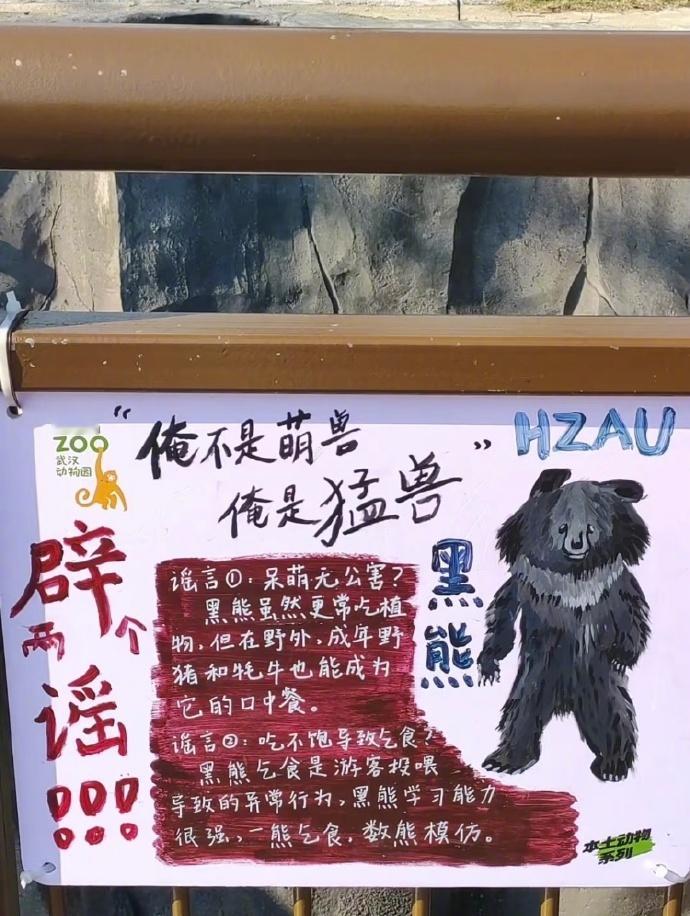 ZOO
武汉
动物园
“俺不是萌兽
俺是猛兽”
HZAU
辟
两个
谣
!!!
黑熊
谣言①:呆萌无公害?
黑熊虽然更常吃植
物,但在野外,成年野
猪和牦牛也能成为
它的口中餐。
谣言②:吃不饱导致乞食?
黑熊乞食是游客投喂
导致的异常行为,黑熊学习能力
很强,一熊乞食,数熊模仿。
本土动物
系列